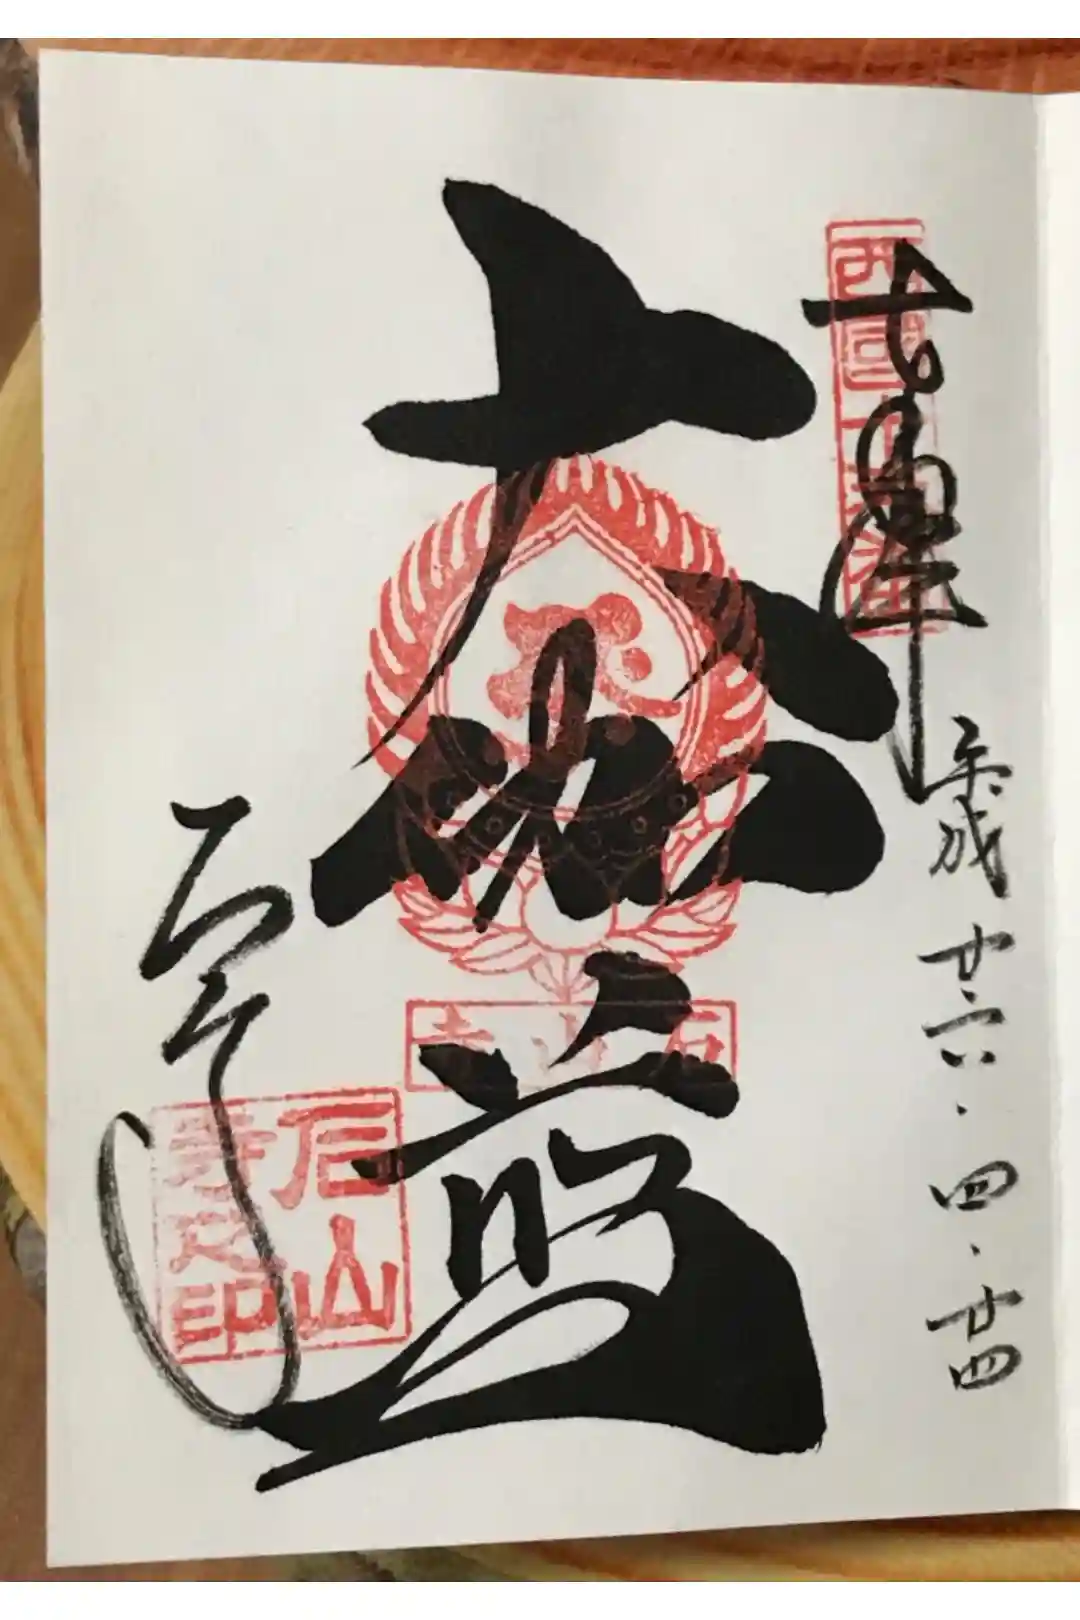 奉拝
平成廿六.四.廿四
西國十三番
大伽藍
石山寺
石山寺
石山寺之印